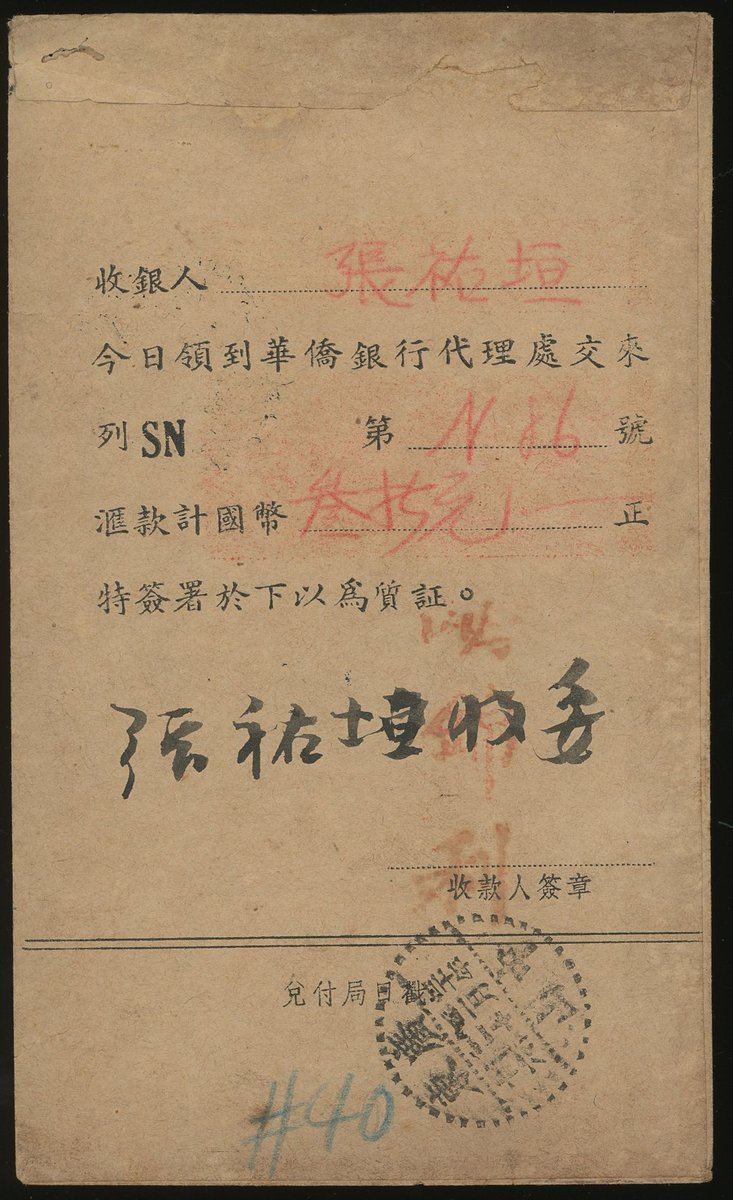 收銀人 張祐垣
今日領到華僑銀行代理處交來
列SN 第 號
滙款計國幣 正
特簽署於下以為質証。
張祐垣收
收款人簽章
兌付局日戳
#40